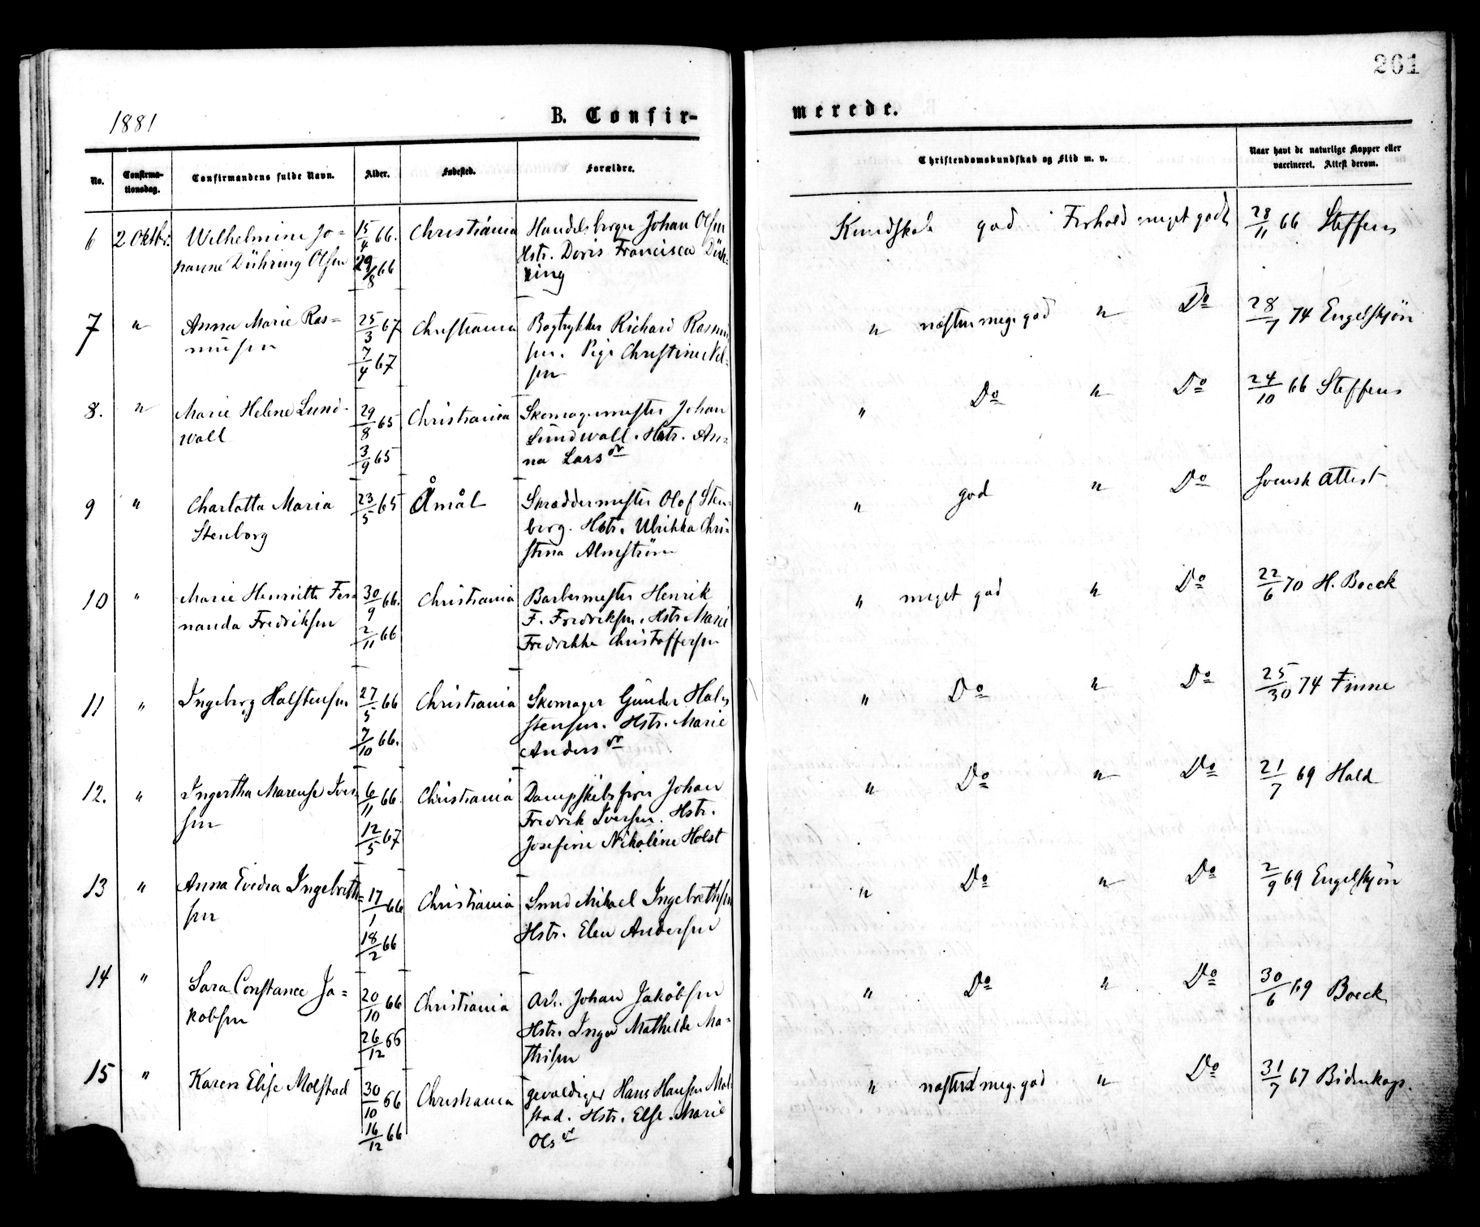 261
1881
B. Confir-
merede.
No.
Confirma-
tionsdag.
Confirmandens fulde Navn.
Alder.
Fødested.
Forældre.
Christendomskundskab og Flid m. v.
Naar havt de naturlige Kopper eller
vaccineret. Attest derom.
6 2 Oktbr. Wilhelmine Jo= 15/4 66. Christiania Handelsborger Johan Olsen Kundskab god Forhold meget godt 28/11 66 Steffens
hanne Dühring Olsen 29/8 66 Hstr. Doris Francisca Düh-
ring
7 " Anna Marie Ras= 25/3 67 Christiania Bogtrykker Richard Rasmus " næsten meg. god " Do 28/7 74 Engelskjøn
mussen 7/4 67 sen. Pige Christine Nil-
sen
8. " Marie Helene Lund- 29/8 65 Christiania Skomagermester Johan " Do " Do 24/10 66 Steffens
wall 3/9 65 Lundwall. Hstr. An=
na Larsdr
9 " Charlotta Maria 23/5 65 Åmål Skræddermester Olof Sten- " god " Do Svensk Attest
Stenborg berg. Hstr. Ulrikka Chri-
stina Almström
10 " Marie Henriette Fer 30/9 66. Christiania Barbermester Henrik " meget god " Do 22/6 70 H. Boeck
nanda Fredriksen 2/11 66 F. Fredriksen. Hstr. Marie
Fredrikke Christoffersen
11 " Ingeborg Halstensen 27/5 66 Christiania Skomager Gunder Hal= " Do " Do 25/30 74 Finne
7/10 66. stensen. Hstr. Marie
Andersdr
12. " Ingertha Marense Iver 6/11 66. Christiania Dampskibsfører Johan " Do " Do 21/7 69 Hald
sen 12/5 67 Fredrik Iversen. Hstr.
Josefine Nikoline Holst
13 " Anna Evedia Ingebreth= 17/1 66 Christiania Smed Mikael Ingebrethsen " Do " Do 2/9 69 Engelskjøn
sen 18/2 66 Hstr. Elen Andersen
14 " Sara Constance Ja= 20/10 66 Christiania Arb. Johan Jakobsen " Do " Do 30/6 69 Boeck
kobsen 26/12 66 Hstr. Inger Mathilde Ma=
thisen
15 " Karen Elise Molstad 30/10 66 Christiania gevaldiger Hans Hansen Mol= " næsten meg. god " Do 31/7 67 Bidenkap.
16/12 66 stad. Hstr. Else Marie
Olsdr